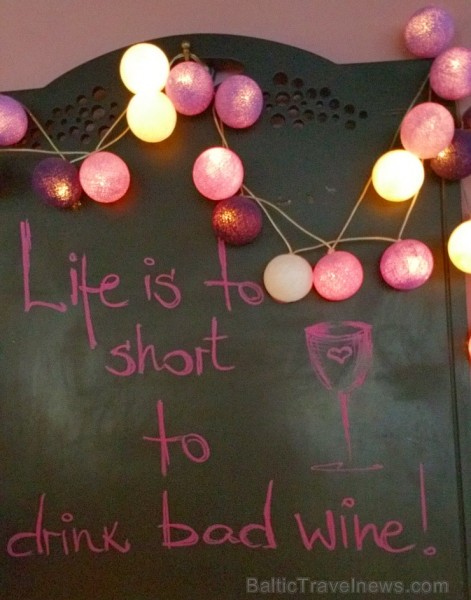 Life is to
short
to
drink bad wine!
BalticTravelnews.com